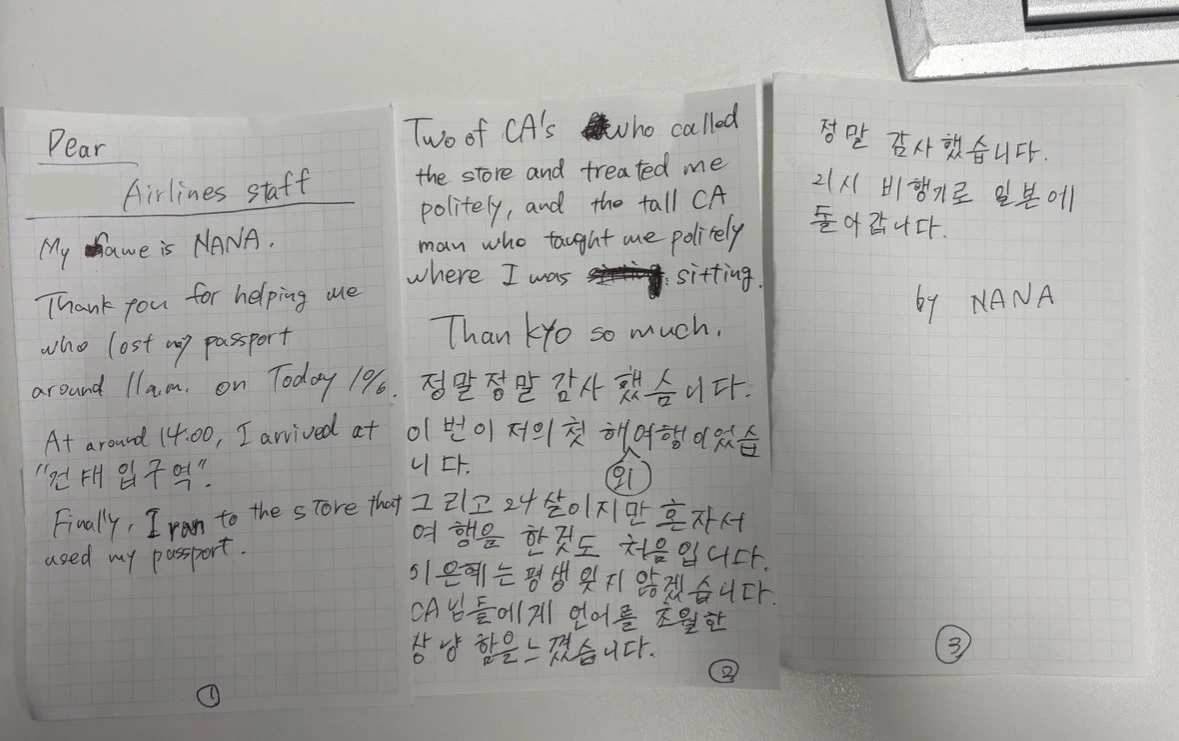 Dear
Airlines staff
My name is NANA.
Thank you for helping me
who lost my passport
around 11a.m. on Today 10/6.
At around 14:00, I arrived at
"건태입구역".
Finally, I ran to the store that
used my passport.
①
Two of CA's who called
the store and treated me
politely, and the tall CA
man who taught me politely
where I was sitting.
Than kyo so much.
정말정말 감사 했습니다.
이번이 저의 첫 해외여행이었습
니다.
그리고 24살이지만 혼자서
여행음 한것도 처음입니다.
이 은혜는 평생 잊지 않겠습니다.
CA님들에게 언어를 초월한
상냥함을느꼈습니다.
②
정말 감사했습니다.
21시 비행기로 일본에
돌아갑니다.
by NANA
③